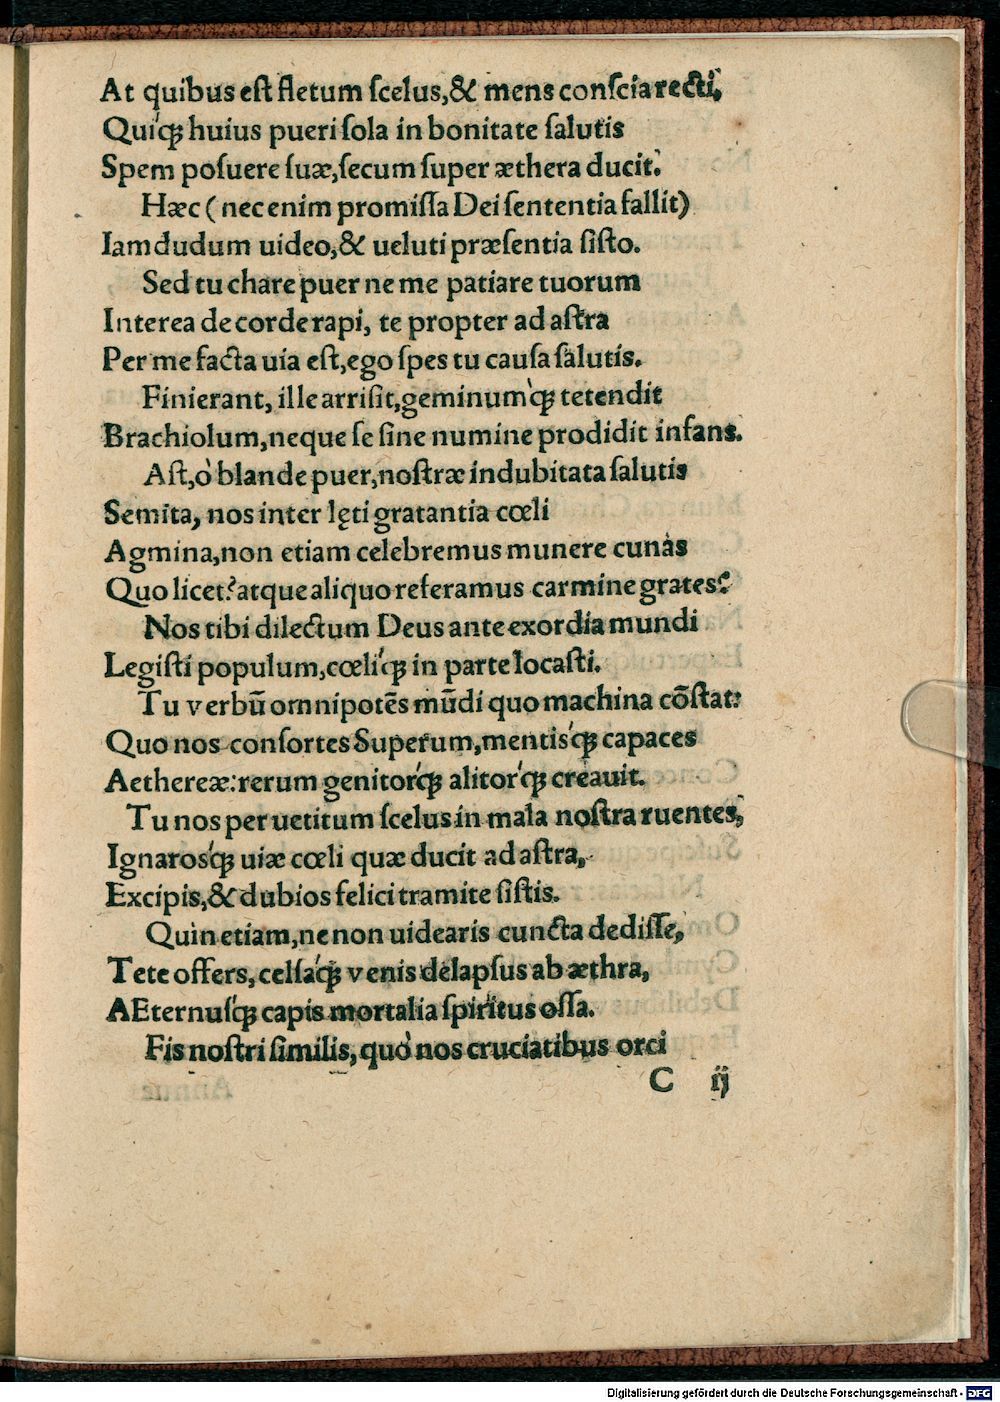 At quibus eſt fletum ſcelus,& mens conſcia recti,
Quiq́ꝫ huius pueri ſola in bonitate ſalutis
Spem poſuere ſuæ,ſecum ſuper æthera ducit.
Hæc ( nec enim promiſſa Dei ſententia fallit)
Iamdudum uideo,& ueluti præſentia ſiſto.
Sed tu chare puer ne me patiare tuorum
Interea de corde rapi, te propter ad aſtra
Per me facta uia eſt,ego ſpes tu cauſa ſalutis.
Finierant, ille arriſit,geminumq́ꝫ tetendit
Brachiolum,neque ſe ſine numine prodidit infans.
Aſt,ò blande puer,noſtræ indubitata ſalutis
Semita, nos inter lęti gratantia cœli
Agmina,non etiam celebremus munere cunas
Quo licet? atque aliquo referamus carmine grates?
Nos tibi dilectum Deus ante exordia mundi
Legiſti populum,cœliq́ꝫ in parte locaſti.
Tu verbū omnipotēs mūdi quo machina cōſtat:
Quo nos conſortes Superum,mentisq́ꝫ capaces
Aethereæ:rerum genitorq́ꝫ alitorq́ꝫ creauit.
Tu nos per uetitum ſcelus in mala noſtra ruentes,
Ignarosq́ꝫ uiæ cœli quæ ducit ad aſtra,
Excipis,& dubios felici tramite ſiſtis.
Quin etiam,ne non uidearis cuncta dediſſe,
Tete offers, celſaq́ꝫ venis delapſus ab æthra,
AEternuſq́ꝫ capis mortalia ſpiritus oſſa.
Fis noſtri ſimilis, quò nos cruciatibus orci
C ij
Annue
Digitalisierung gefördert durch die Deutsche Forschungsgemeinschaft - DFG